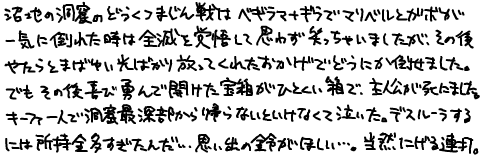 沼地の洞窟のどうくつまじん戦は ベギラマ+ギラで マリベルとガボが
一気に倒れた時は全滅を覚悟して思わず笑っちゃいましたが、その後
やたらとまばゆい光ばかり放ってくれたおかげでどうにか倒せました。
でも その後喜び勇んで開けた宝箱がひとくい箱で、主人公が死にました。
キーファ一人で洞窟最深部から帰らないといけなくて泣いた。デスルーラする
には所持金多すぎたんだい…思い出の鈴がほしい…。当然にげる連打。